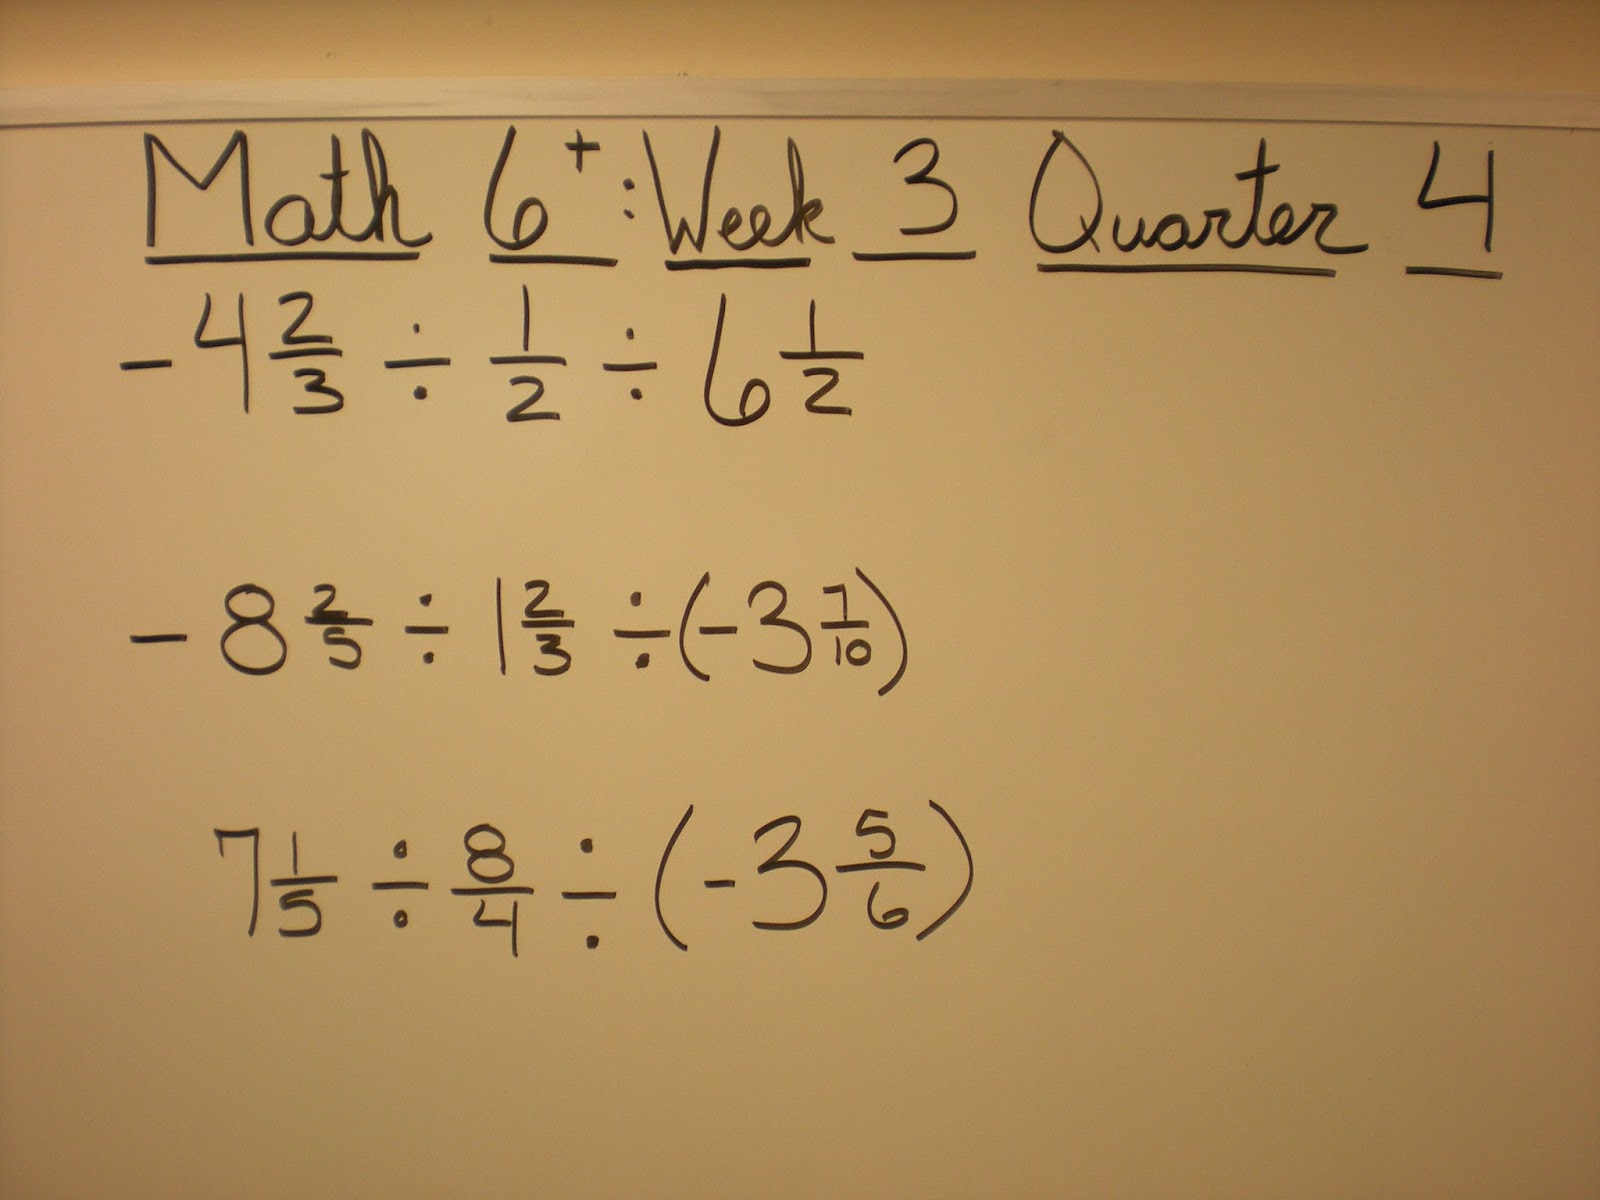 Math 6+: Week 3 Quarter 4
-4 2/3 ÷ 1/2 ÷ 6 1/2
-8 2/5 ÷ 1 2/3 ÷ (-3 7/10)
7 1/5 ÷ 8/4 ÷ (-3 5/6)